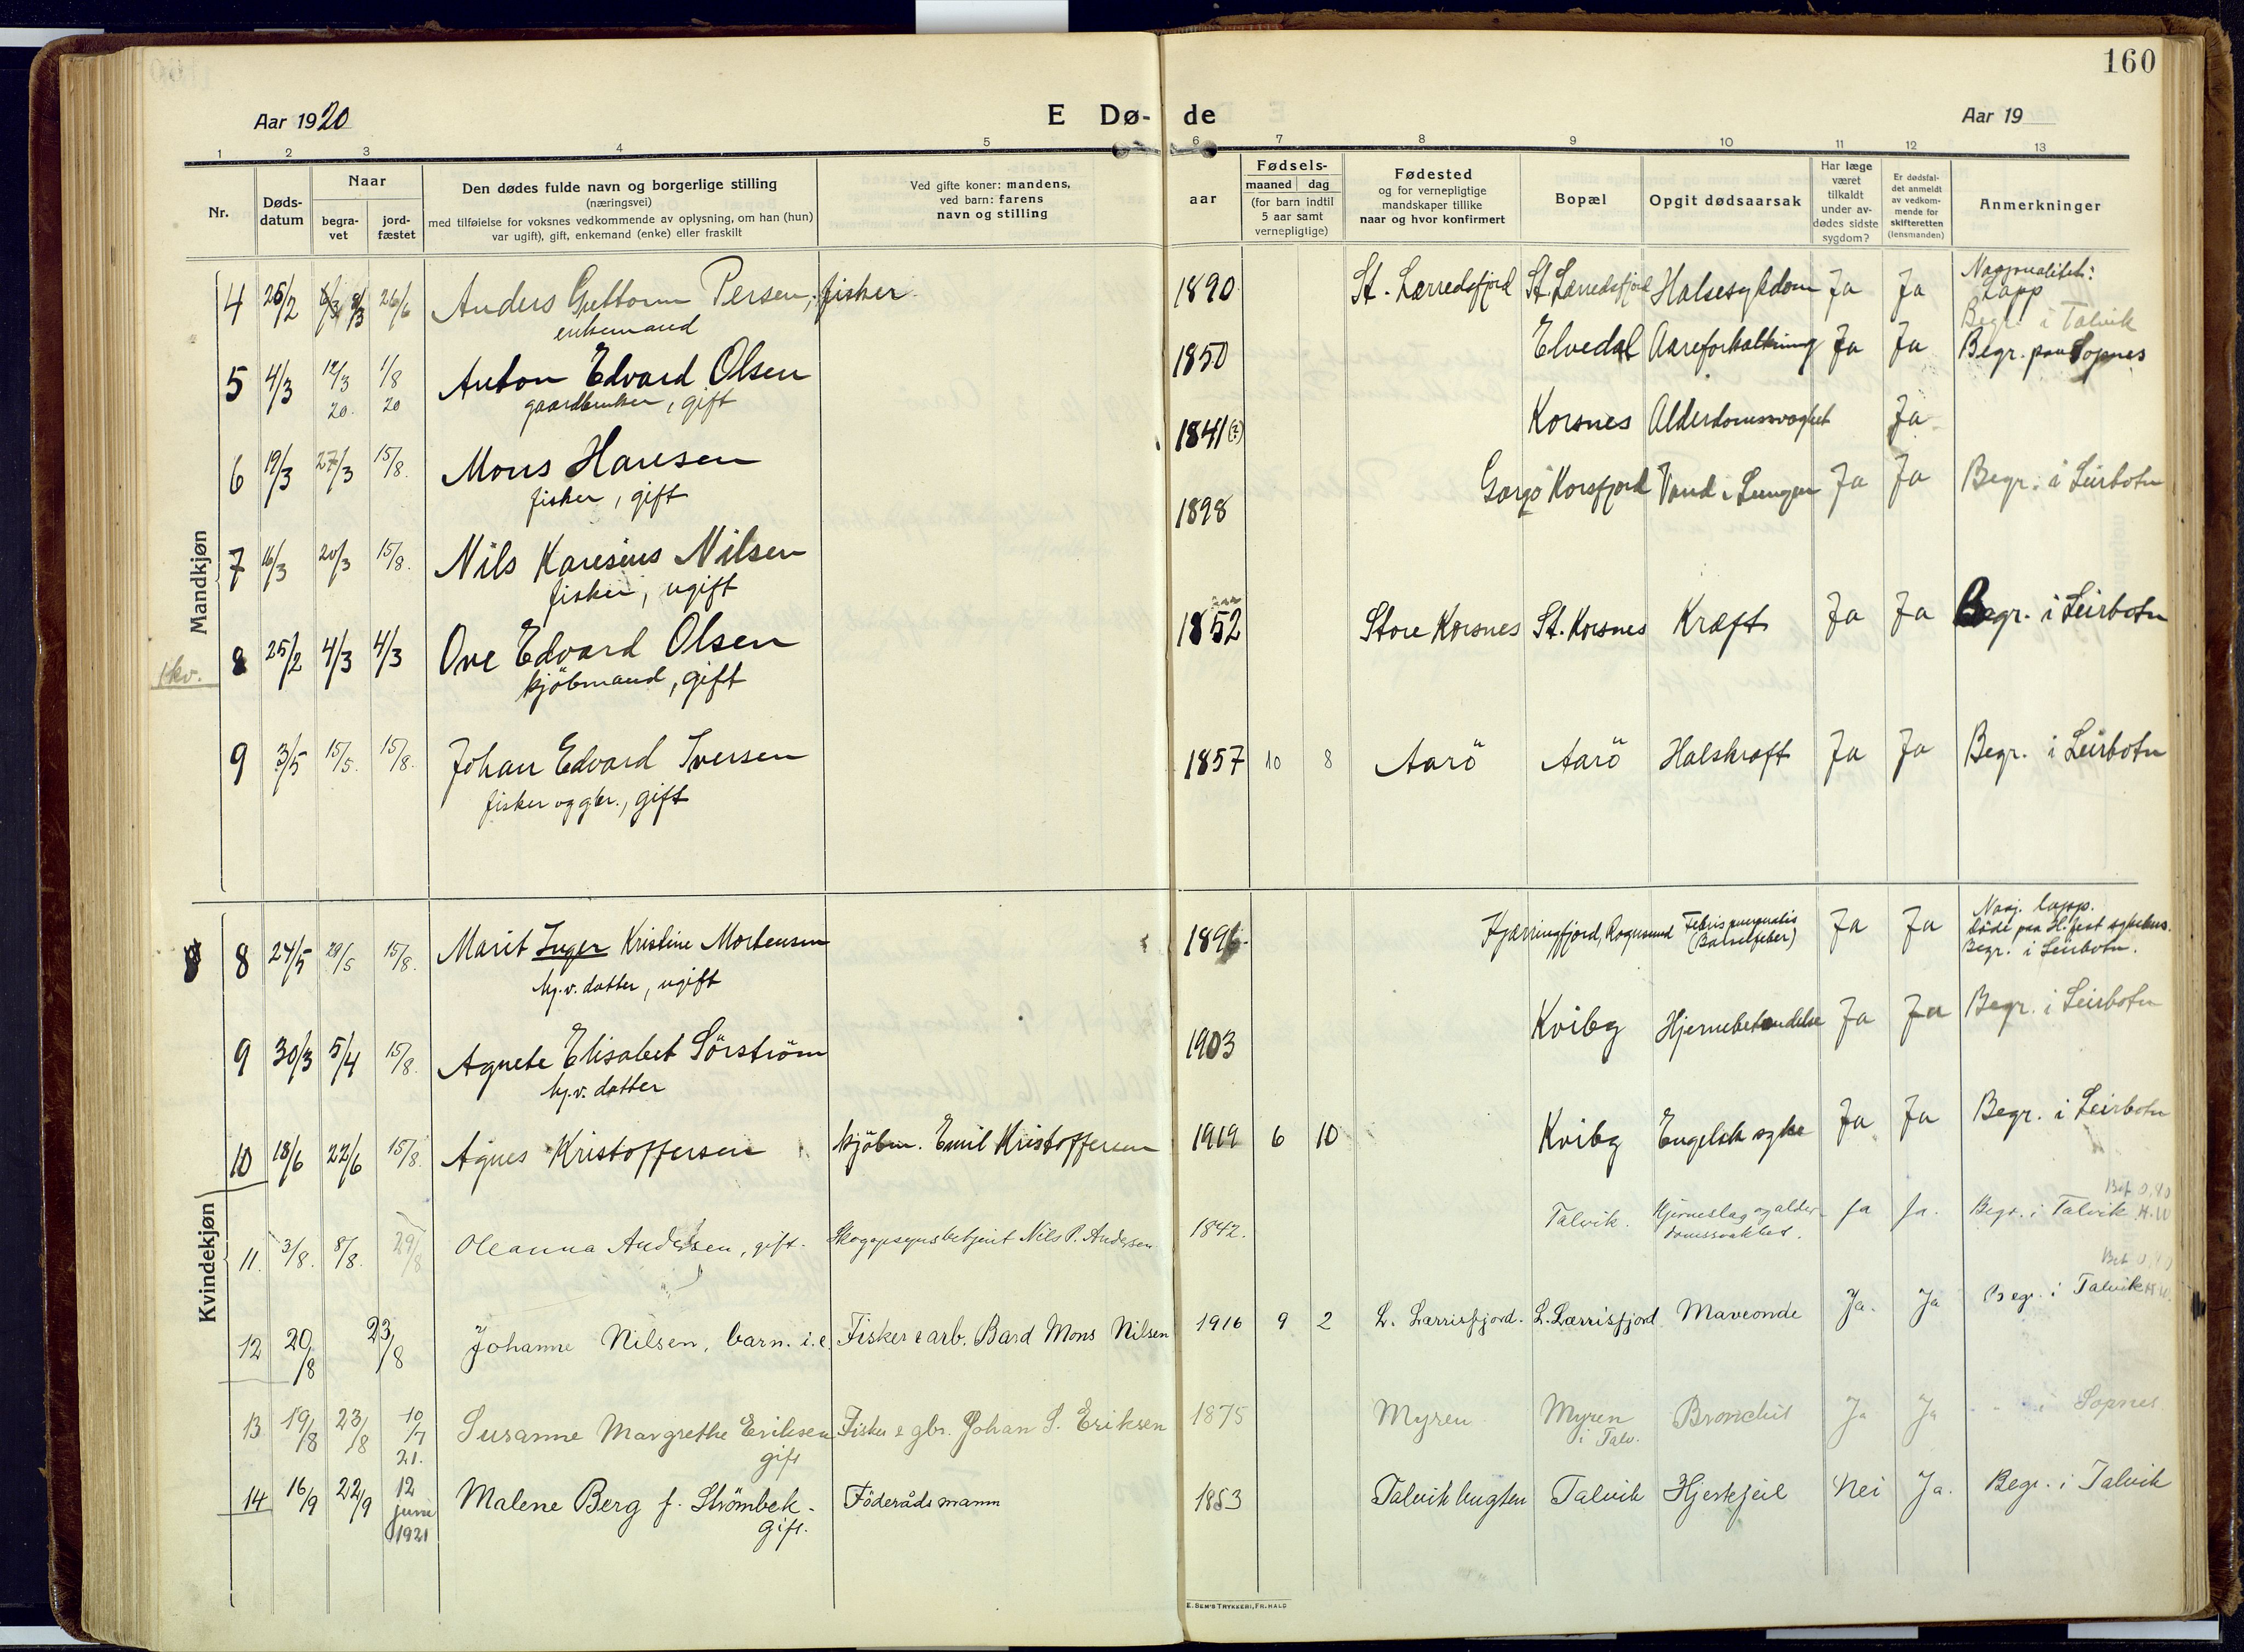 160
Aar 1920
E Dø-
de
Aar 19
1 2 3 4 5 6 7 8 9 10 11 12 13
Nr.
Døds-
datum
Naar
begra-
vet
jord-
fæstet
Den dødes fulde navn og borgerlige stilling
(næringsvei)
med tilføielse for voksnes vedkommende av oplysning, om han (hun)
var ugift), gift, enkemand (enke) eller fraskilt
Ved gifte koner: mandens,
ved barn: farens
navn og stilling
aar
Fødsels-
maaned dag
(for barn indtil
5 aar samt
vernepligtige)
Fødested
og for vernepligtige
mandskaper tillike
naar og hvor konfirmert
Bopæl
Opgit dødsaarsak
Har læge
været
tilkaldt
under av-
dødes sidste
sygdom?
Er dødsfal-
det anmeldt
av vedkom-
mende for
skifteretten
(lensmanden)
Anmerkninger
Mandkjøn
4 25/2 8/3 26/6 Anders Guttorm Persen, fisker
enkemand
1890 St. Lerredsfjord St. Lerredsfjord Halsesykdom Ja Ja Nasjonalitet:
Lapp
Begr. i Talvik
5 4/3 12/3 20. 1/8 20 Anton Edvard Olsen
gaardbruker, gift
1850 Elvedal Aareforkalkning Ja Ja Begr. paa Sopnes
6 19/3 27/3 15/8. Mons Hansen
fisker, gift
1841(?) Korsnes Alderdomssvaghet Ja
7 16/3 20/3 15/8. Nils Karesius Nilsen
fisker, ugift
1898 Korsfjord Vand i Lungen Ja Ja Begr. i Leirbotn
1 kv.
8 25/2 4/3 4/3 Ove Edvard Olsen
kjöbmand, gift
1852 Store Korsnes St. Korsnes Kræft Ja Ja Begr. i Leirbotn
9 3/5 15/5. 15/8. Johan Edvard Iversen
fisker og gbr., gift
1857 10 8 Aarö Aarö Halskræft Ja Ja Begr. i Leirbotn
Kvindekjøn
8 24/5 29/5 15/8. Marit Inger Kristine Mortensen
hj.v. datter, ugift
1896. Kjærringfjord, Rognsund Febris puerperalis
(Barselfeber) Ja Ja Nasj. lapp.
Döde paa H.fest sykehus.
Begr. i Leirbotn.
9 30/3 5/4 15/8. Agnete Elisabet Sörström
hj.v. datter
1903 Kviby Hjernebetændelse Ja Ja Begr. i Leirbotn
10 18/6 22/6 15/8. Agnes Kristoffersen kjöbm. Emil Kristoffersen 1919 6 10 Kviby Engelsk syke Ja Ja Begr. i Leirbotn
11. 3/8. 8/8. 29/8 Oleanna Andersen, gift. Skogopsynsbetjent Nils P. Andersen 1842. Talvik. Hjerneslag og alder-
domssvakhet. Ja Ja. Begr. i Talvik
Bet 0,80
H.W
12 20/8 23/8 Johanne Nilsen, barn. i.e. Fisker & arb. Bard Mons Nilsen 1916 9 2 L. Lerrisfjord. L. Lerrisfjord Maveonde Ja. Ja Begr. i Talvik
13 19/8 23/8 10/7 21. Susanne Margrethe Eriksen
gift
Fisker & gbr. Johan S. Eriksen 1875 Myren Myren
i Talv. Bronchit Ja Ja " " i Sopnes
14 16/9 22/9 12 juni 1921 Malene Berg f. Strömbek.
Gift.
Föderådsmann 1853 Talvikbugten Talvik Hjertefeil Nei Ja. Begr. i Talvik
E. SEM'S TRYKKERI, FR.HALD